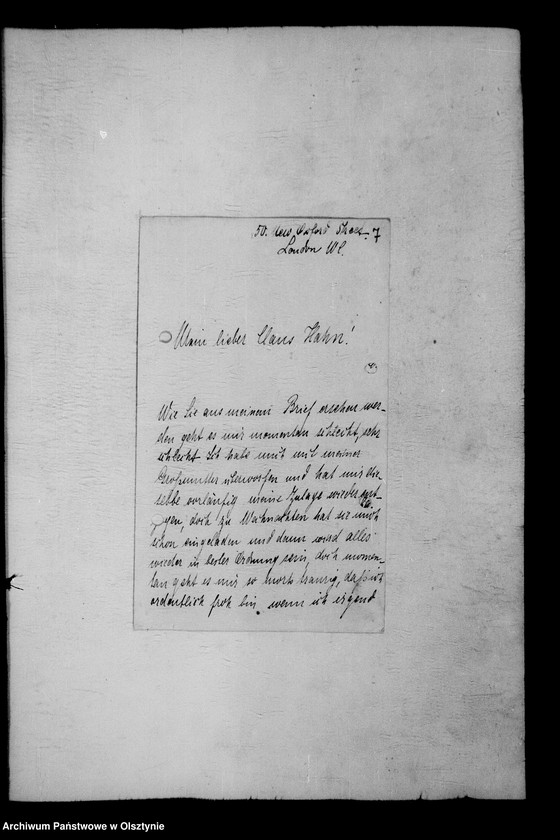 50. New Oxford Street. 7
London WC.
Mein lieber Claus Hahn!
Wie Sie aus meinem Brief ersehen wer-
den geht es mir momentan schlecht, sehr
schlecht. Ich habe mich mit meiner
Großmutter überworfen und hat mir die-
selbe vorläufig meine Zulage wieder
gen, doch zu Weihnachten hat sie mich
schon eingeladen und dann wird alles
wieder in bester Ordnung sein, doch momen-
tan geht es mir so traurig, daß ich
ordentlich froh bin, wenn ich irgend
Archiwum Państwowe w Olsztynie